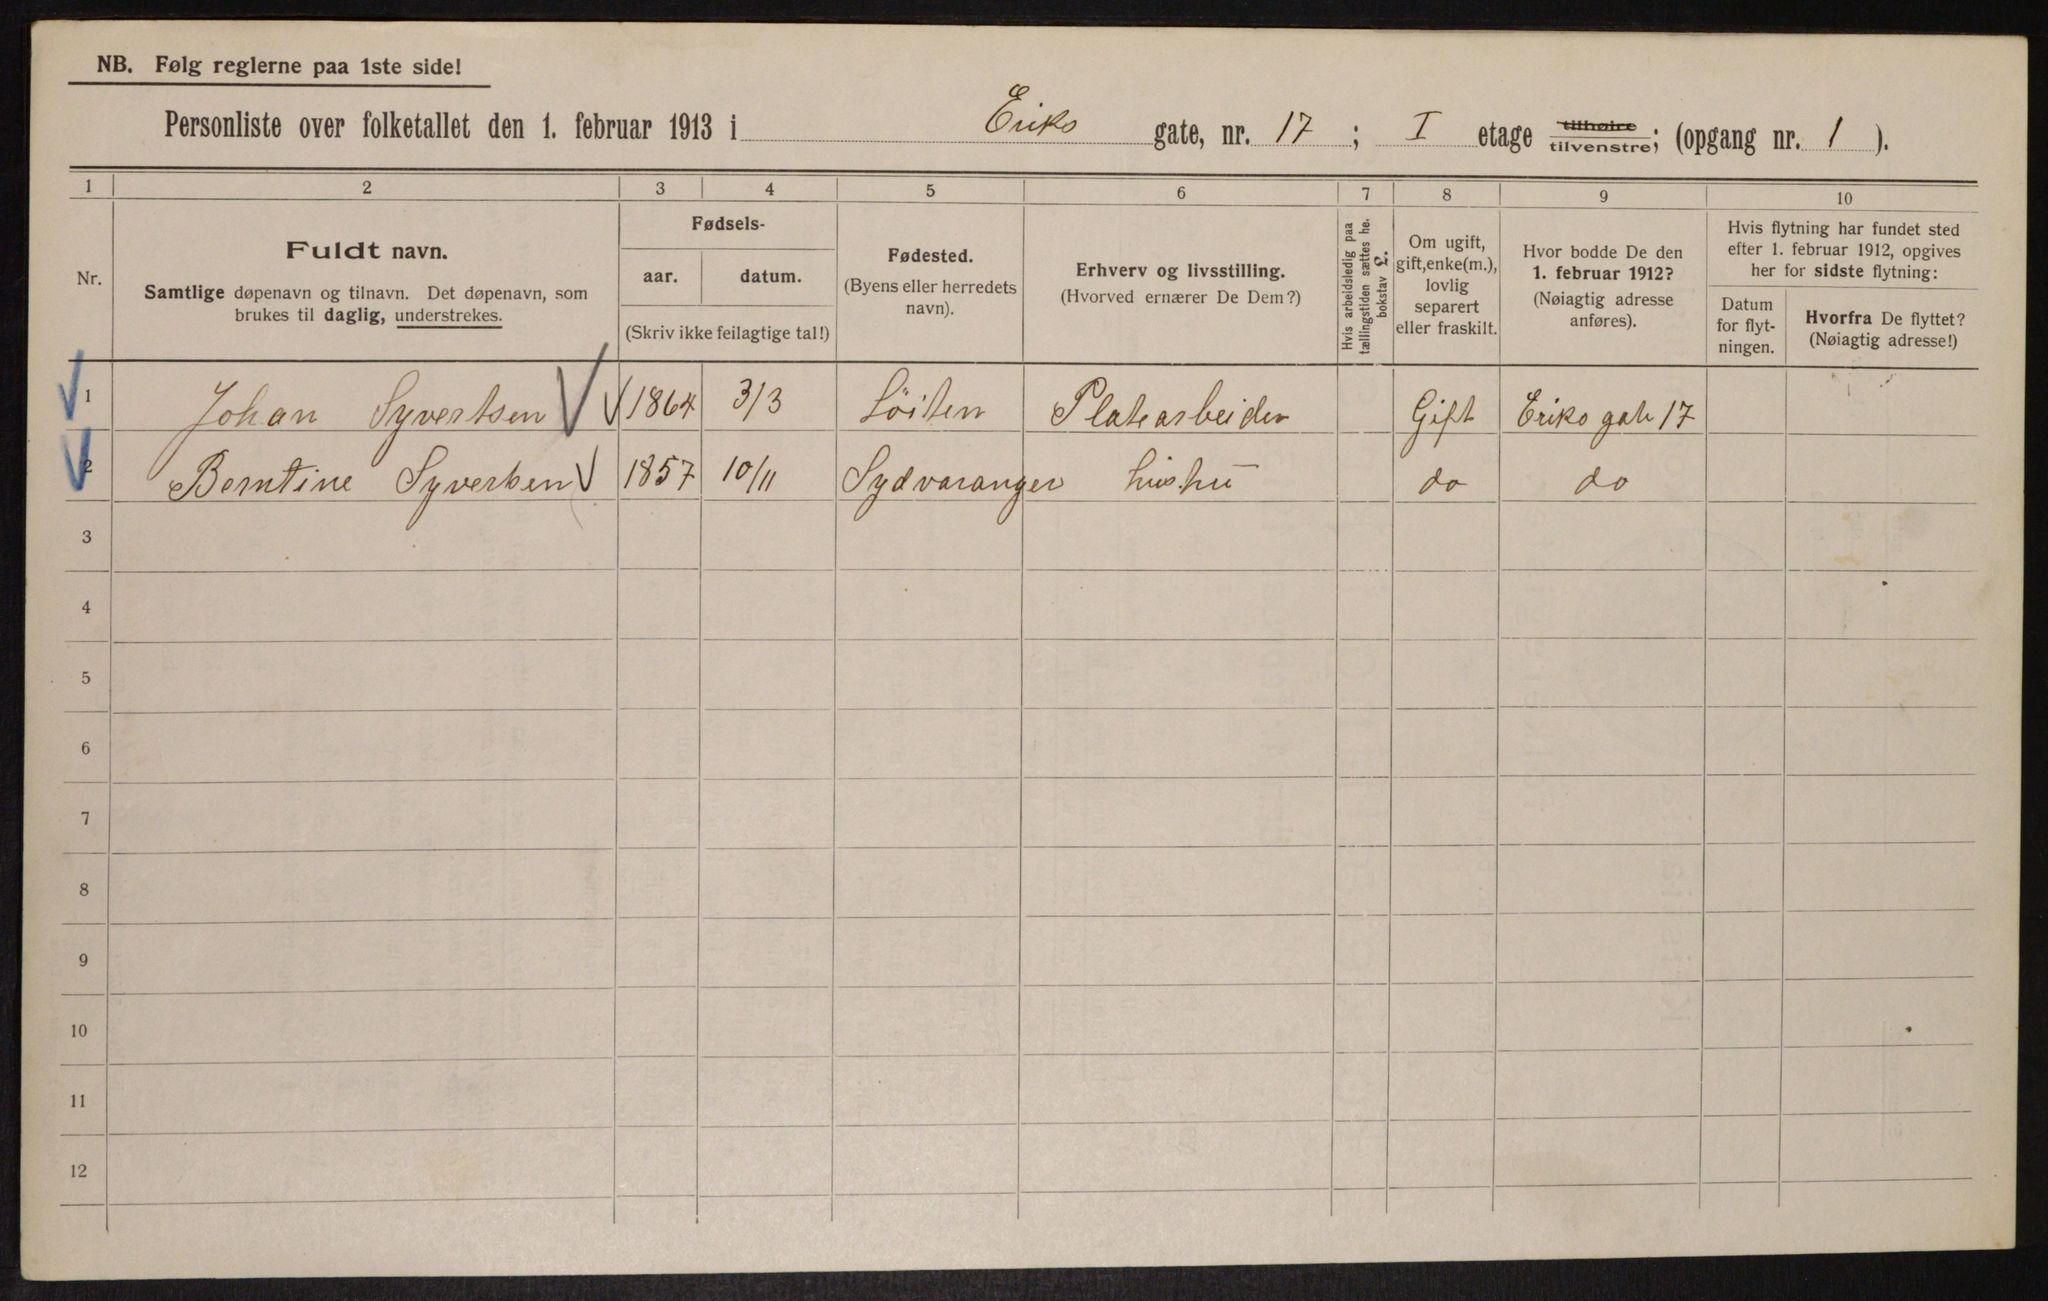 NB. Følg reglerne paa 1ste side!
Personliste over folketallet den 1. februar 1913 i Eriks gate, nr. 17; I etage tilhøire tilvenstre; (opgang nr. 1).
1 2 3 4 5 6 7 8 9 10
Nr.
Fuldt navn.
Samtlige døpenavn og tilnavn. Det døpenavn, som
brukes til daglig, understrekes.
Fødsels-
aar. datum.
(Skriv ikke feilagtige tal!)
Fødested.
(Byens eller herredets
navn).
Erhverv og livsstilling.
(Hvorved ernærer De Dem?)
Hvis arbeidsledig paa
tællingstiden sættes he.
bokstav L.
Om ugift,
gift, enke(m.),
lovlig
separert
eller fraskilt.
Hvor bodde De den
1. februar 1912?
(Nøiagtig adresse
anføres).
Hvis flytning har fundet sted
efter 1. februar 1912, opgives
her for sidste flytning:
Datum
for flyt-
ningen.
Hvorfra De flyttet?
(Nøiagtig adresse!)
1 Johan Syvertsen 1864 3/3 Löiten Platearbeider Gift Eriks gate 17
2 Berntine Syvertsen 1857 10/11 Sydvaranger do do
3
4
5
6
7
8
9
10
11
12